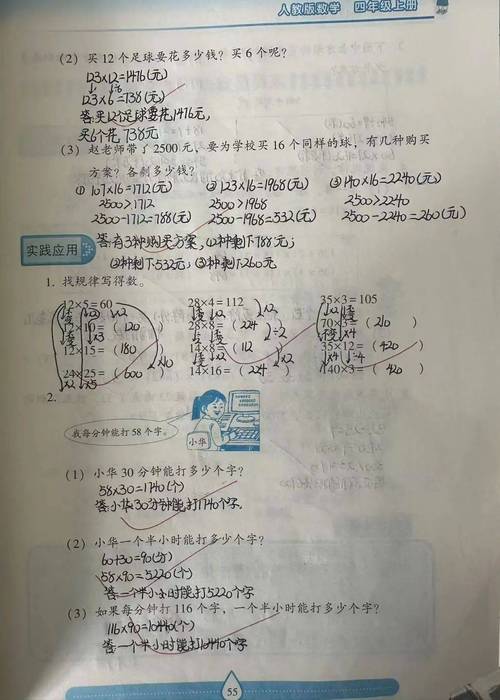 人教版数学 四年级上册
(2) 买12个足球要花多少钱? 买6个呢?
123×12=1476(元)
123×6=738(元)
答:买12个足球要花1476元,
买6个花738元
(3) 赵老师带了2500元,要为学校买16个同样的球,有几种购买
方案? 各剩多少钱?
① 107×16=1712(元) ② 123×16=1968(元) ③ 140×16=2240(元)
2500>1712 2500>1968 2500>2240
2500-1712=788(元) 2500-1968=532(元) 2500-2240=260(元)
答:有3种购买方案,①种剩下788元;
②种剩下532元,③种剩下260元
实践应用
1. 找规律写得数。
12×5=60 28×4=112 35×3=105
12×10=(120) 28×8=(224) 70×3=(210)
12×15=(180) 14×8=(112) 35×12=(420)
24×25=(600) 14×16=(224) 140×3=(420)
2.
我每分钟能打58个字。
小华
(1) 小华30分钟能打多少个字?
58×30=1740(个)
答:小华30分钟能打1740个字。
(2) 小华一个半小时能打多少个字?
60+30=90(分)
58×90=5220(个)
答:一个半小时能打5220个字
(3) 如果每分钟打116个字,一个半小时能打多少个字?
116×90=10440(个)
答:一个半小时能打10440个字
55